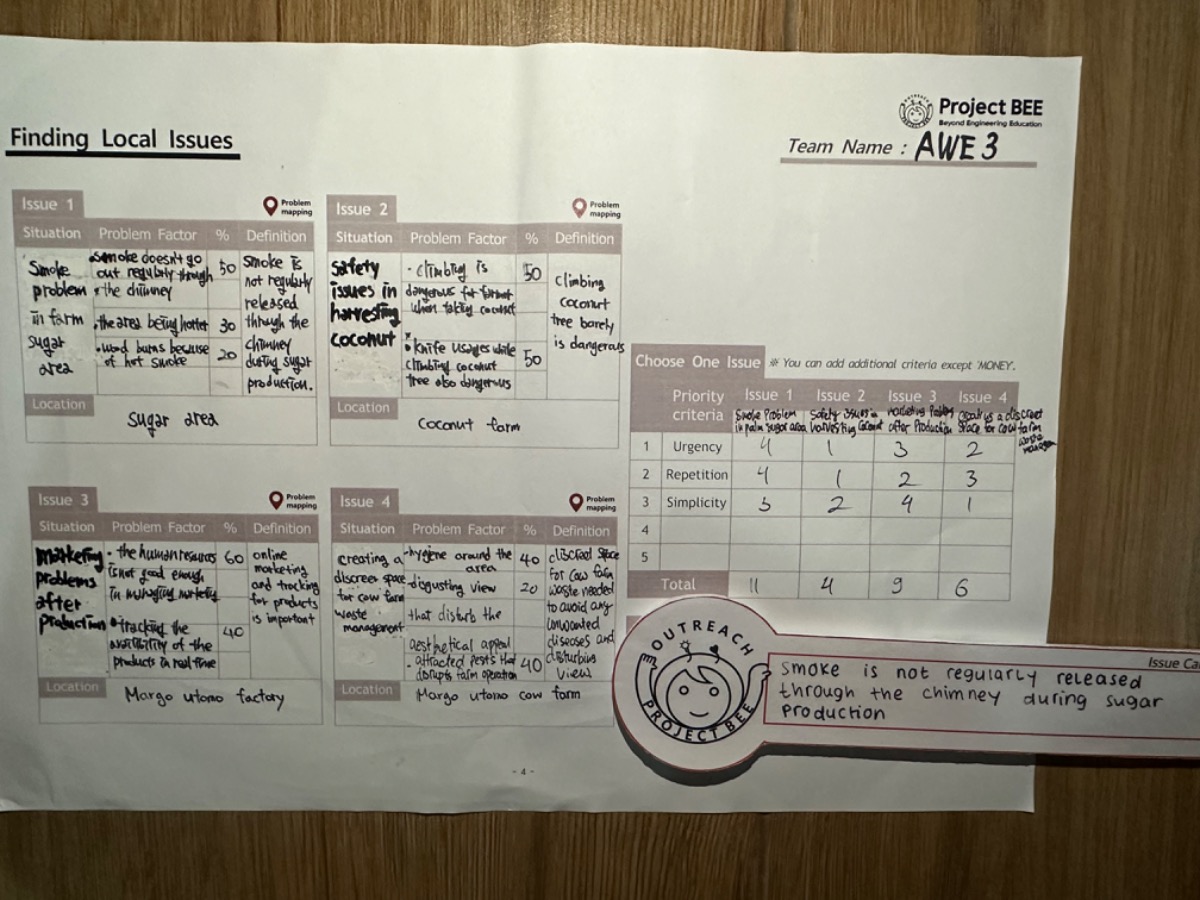 Project BEE
Beyond Engineering Education
Finding Local Issues
Team Name : AWE 3
Issue 1
Problem
mapping
Situation Problem Factor % Definition
Smoke
problem
in farm
sugar
area
smoke doesn't go
out regularly through
the chimney
50
• the area being hotter
30
• wood burns because
of hot smoke
20
Smoke is
not regularly
released
through the
chimney
during sugar
production.
Location
Sugar area
Issue 2
Problem
mapping
Situation Problem Factor % Definition
Safety
issues in
harvesting
coconut
• climbing is
dangerous for farmer
when taking coconut
50
• knife usages while
climbing coconut
tree also dangerous
50
climbing
coconut
tree barely
is dangerous
Location
Coconut farm
Issue 3
Problem
mapping
Situation Problem Factor % Definition
Marketing
problems
after
production
• the human resources
is not good enough
in managing marketing
60
• tracking the
of the
products in real time
40
online
marketing
and tracking
for products
is important
Location
Margo utomo factory
Issue 4
Problem
mapping
Situation Problem Factor % Definition
creating a
discreet space
for cow farm
waste
management
-hygiene around the
area
40
-disgusting view
20
that disturb the
aesthetical appeal
- attracted pests that
disrupts farm operation
40
discreet space
for cow farm
waste needed
to avoid any
unwanted
diseases and
disturbing
view
Location
Margo utomo cow farm
Choose One Issue ※ You can add additional criteria except 'MONEY'.
Priority
criteria
Issue 1 Issue 2 Issue 3 Issue 4
Smoke Problem
in palm sugar area
Safety issues in
harvesting coconut
marketing Problem
after Production
creating a discreet
space for cow farm
waste
1 Urgency 4 1 3 2
2 Repetition 4 1 2 3
3 Simplicity 3 2 4 1
4
5
Total 11 4 9 6
OUTREACH
PROJECT BEE
Issue Ca
Smoke is not regularly released
through the chimney during sugar
production
- 4 -